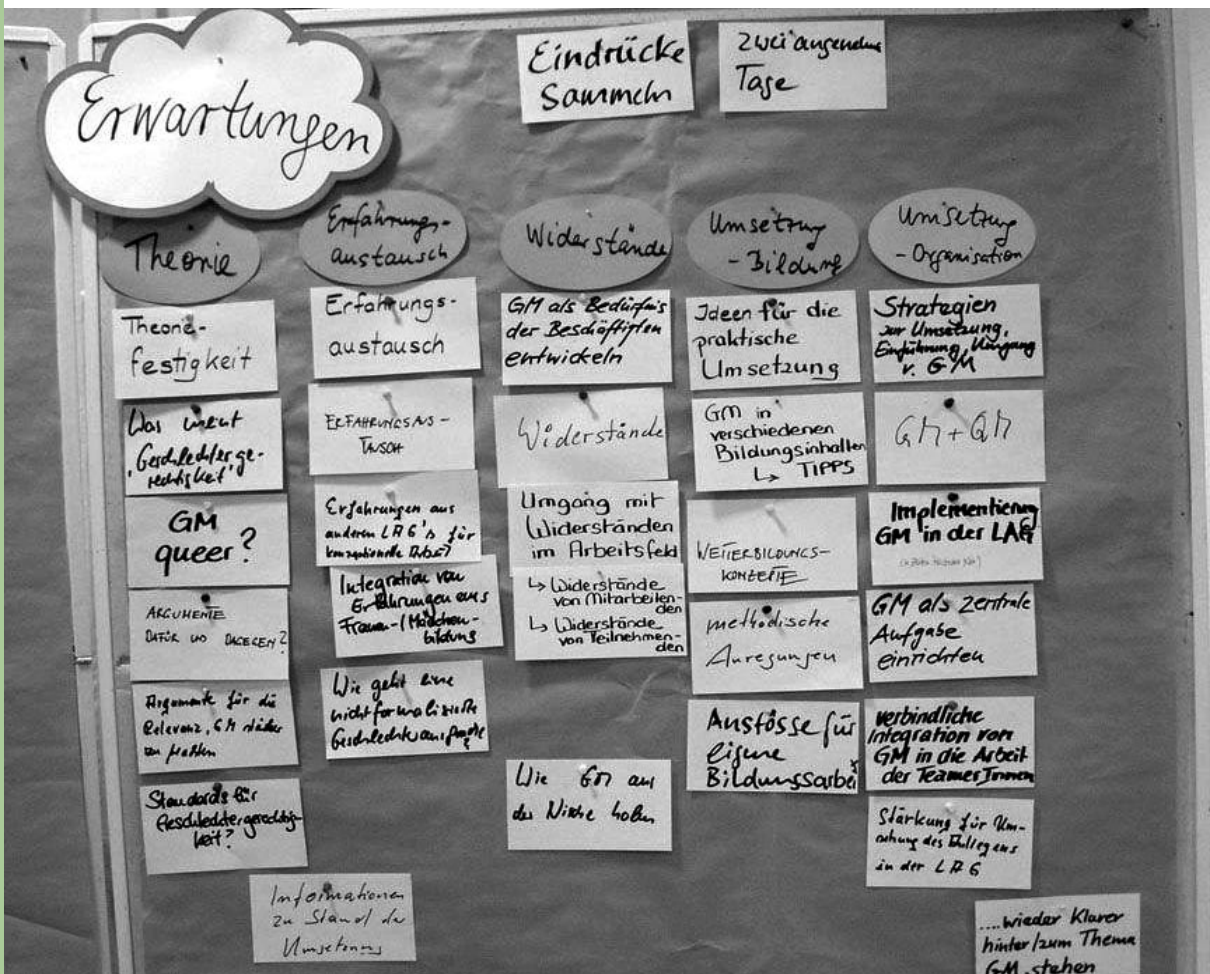 Erwartungen
Eindrücke
Sammeln
Zwei angenehme
Tage
Theorie
Theorie-
festigkeit
Was meint
'Geschlechterge-
rechtigkeit'
GM
queer?
ARGUMENTE
DAFÜR UND DAGEGEN?
Argumente für die
Relevanz, GM stärker
zu
Standards für
Geschlechtergerechtig-
keit?
Informationen
zu Stand der
Umsetzung
Erfahrungs-
austausch
Erfahrungs-
austausch
ERFAHRUNGSAUS-
TAUSCH
Erfahrungen aus
anderen LAG's für
konzeptionelle Arbeit
Integration von
Erfahrungen aus
Frauen-/Mädchen-
bildung
Wie geht eine
nicht formalisierte
Geschlechteransprache
?
Widerstände
GM als Bedürfnis
der Beschäftigten
entwickeln
Widerstände
Umgang mit
Widerständen
im Arbeitsfeld
↳ Widerstände
von Mitarbeiten-
den
↳ Widerstände
von Teilnehmen-
den
Wie GM aus
der Nische holen
Umsetzung
- Bildung
Ideen für die
praktische
Umsetzung
GM in
verschiedenen
Bildungsinhalten
↳ TIPPS
WEITERBILDUNGS-
KONZEPTE
methodische
Anregungen
Anstösse für
eigene
Bildungsarbeit
Umsetzung
- Organisation
Strategien
zur Umsetzung,
Einführung, Umgang
v. GM
GM + QM
Implementierung
GM in der LAG
GM als zentrale
Aufgabe
einrichten
verbindliche
Integration von
GM in die Arbeit
der TeamerInnen
Stärkung für Um-
setzung des Anliegens
in der LAG
....wieder klarer
hinter/zum Thema
GM stehen